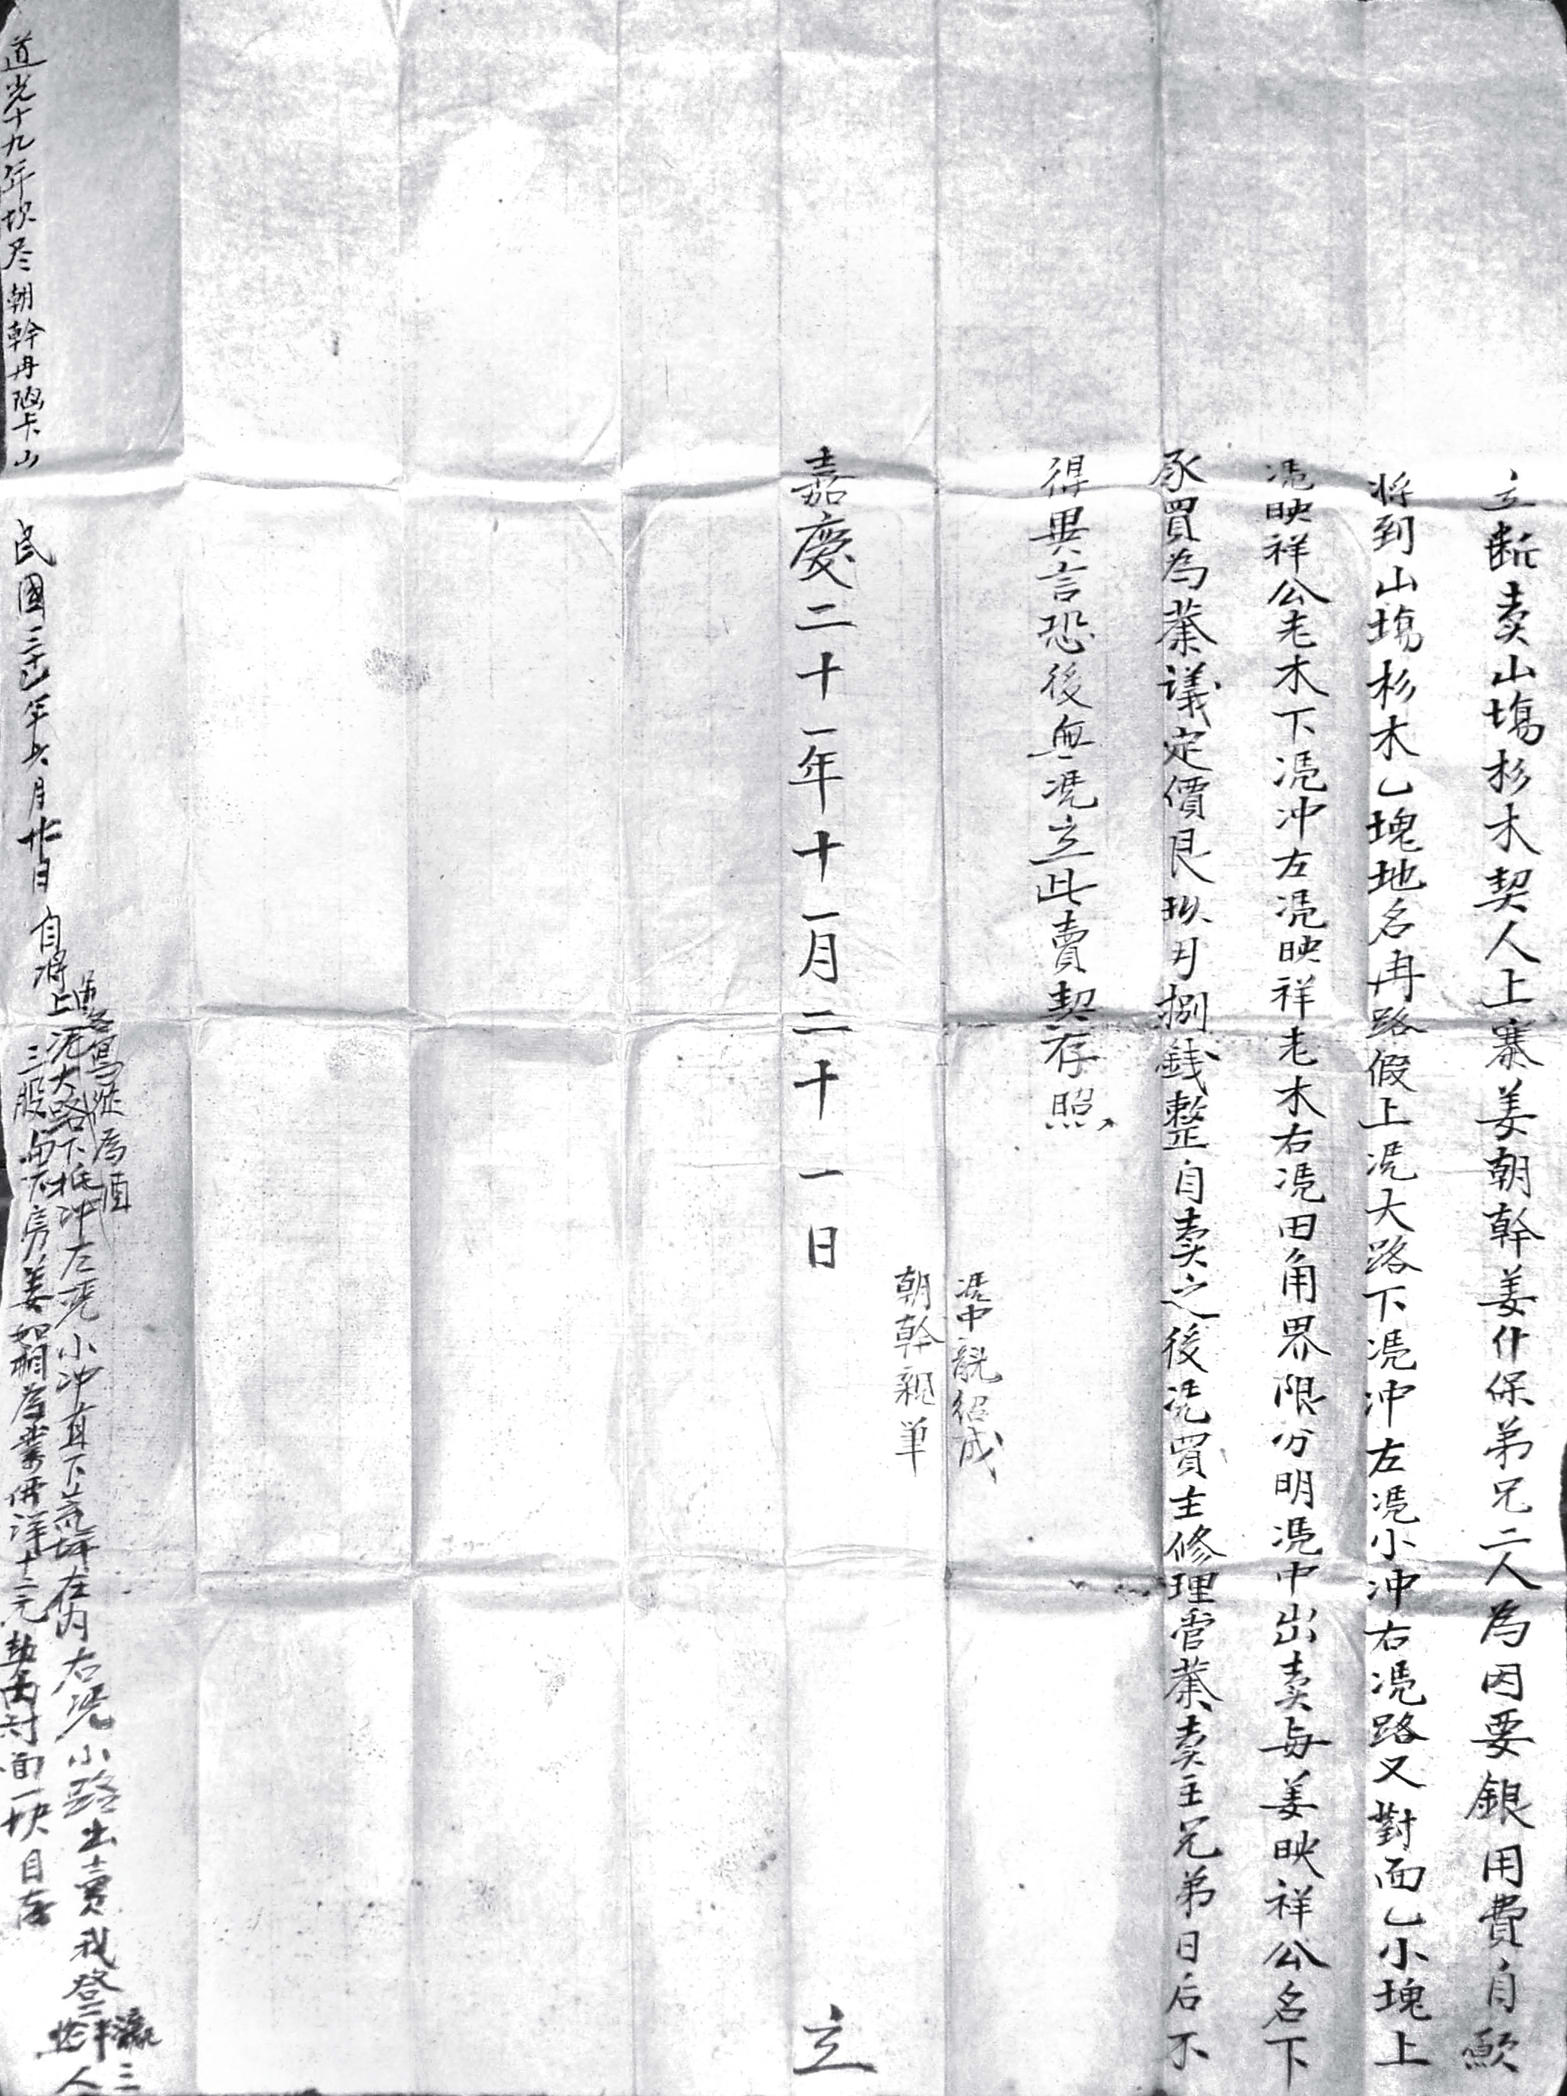 立斷卖山塲杉木契人上寨姜朝幹姜什保弟兄二人為因要銀用費自愿
将到山塲杉木乙塊地名冉路假上凴大路下凴冲左凴小冲右凴路又對面乙小塊上
凴映祥公老木下凴冲左凴映祥老木右凴田角界限分明凴中出卖每姜映祥公名下
承買為業議定價艮玖分捌銭整自卖之後凴買主修理管業卖主兄弟日后不
得異言恐後無凴立此賣契存照
凴中 紹成
朝幹親筆
嘉慶二十一年十一月二十一日 立
道光十九年坎尽朝幹冉 卡山
民國 年六月廿日 自将上凴大路下抵冲左凴小冲直下荒坪在内右凴小路出賣我登 三人
三股 右房姜 相為業價洋十二元 對面一块自存